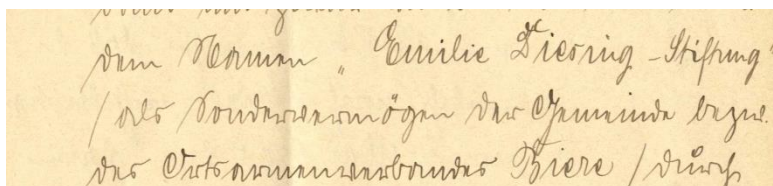 dem Namen „Emilie Diesing-Stiftung"
/ als Sondervermögen der Gemeinde bezw.
des Ortsarmenverbandes Biere / durch